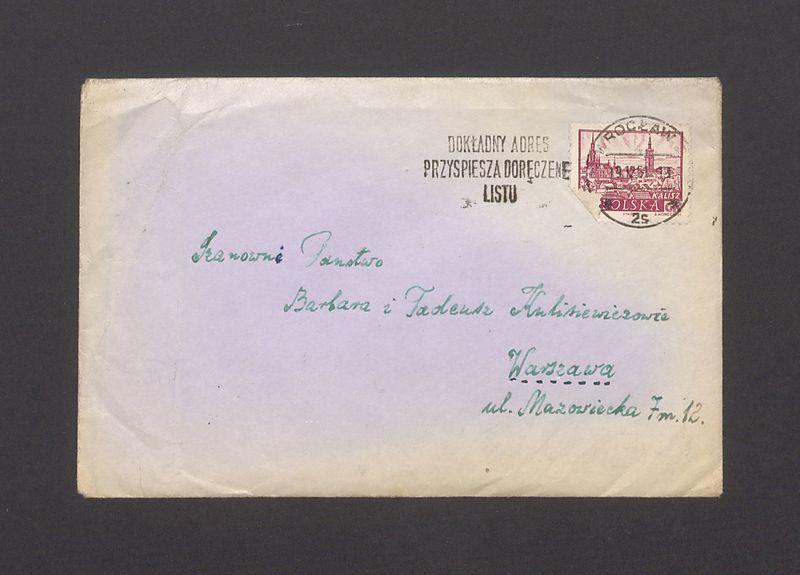 DOKŁADNY ADRES
PRZYSPIESZA DORĘCZENIE
LISTU
WROCŁAW
2s
KALISZ
POLSKA
Szanowni Państwo
Barbara i Tadeusz Kulisiewiczowie
Warszawa
ul. Mazowiecka 7 m. 12.